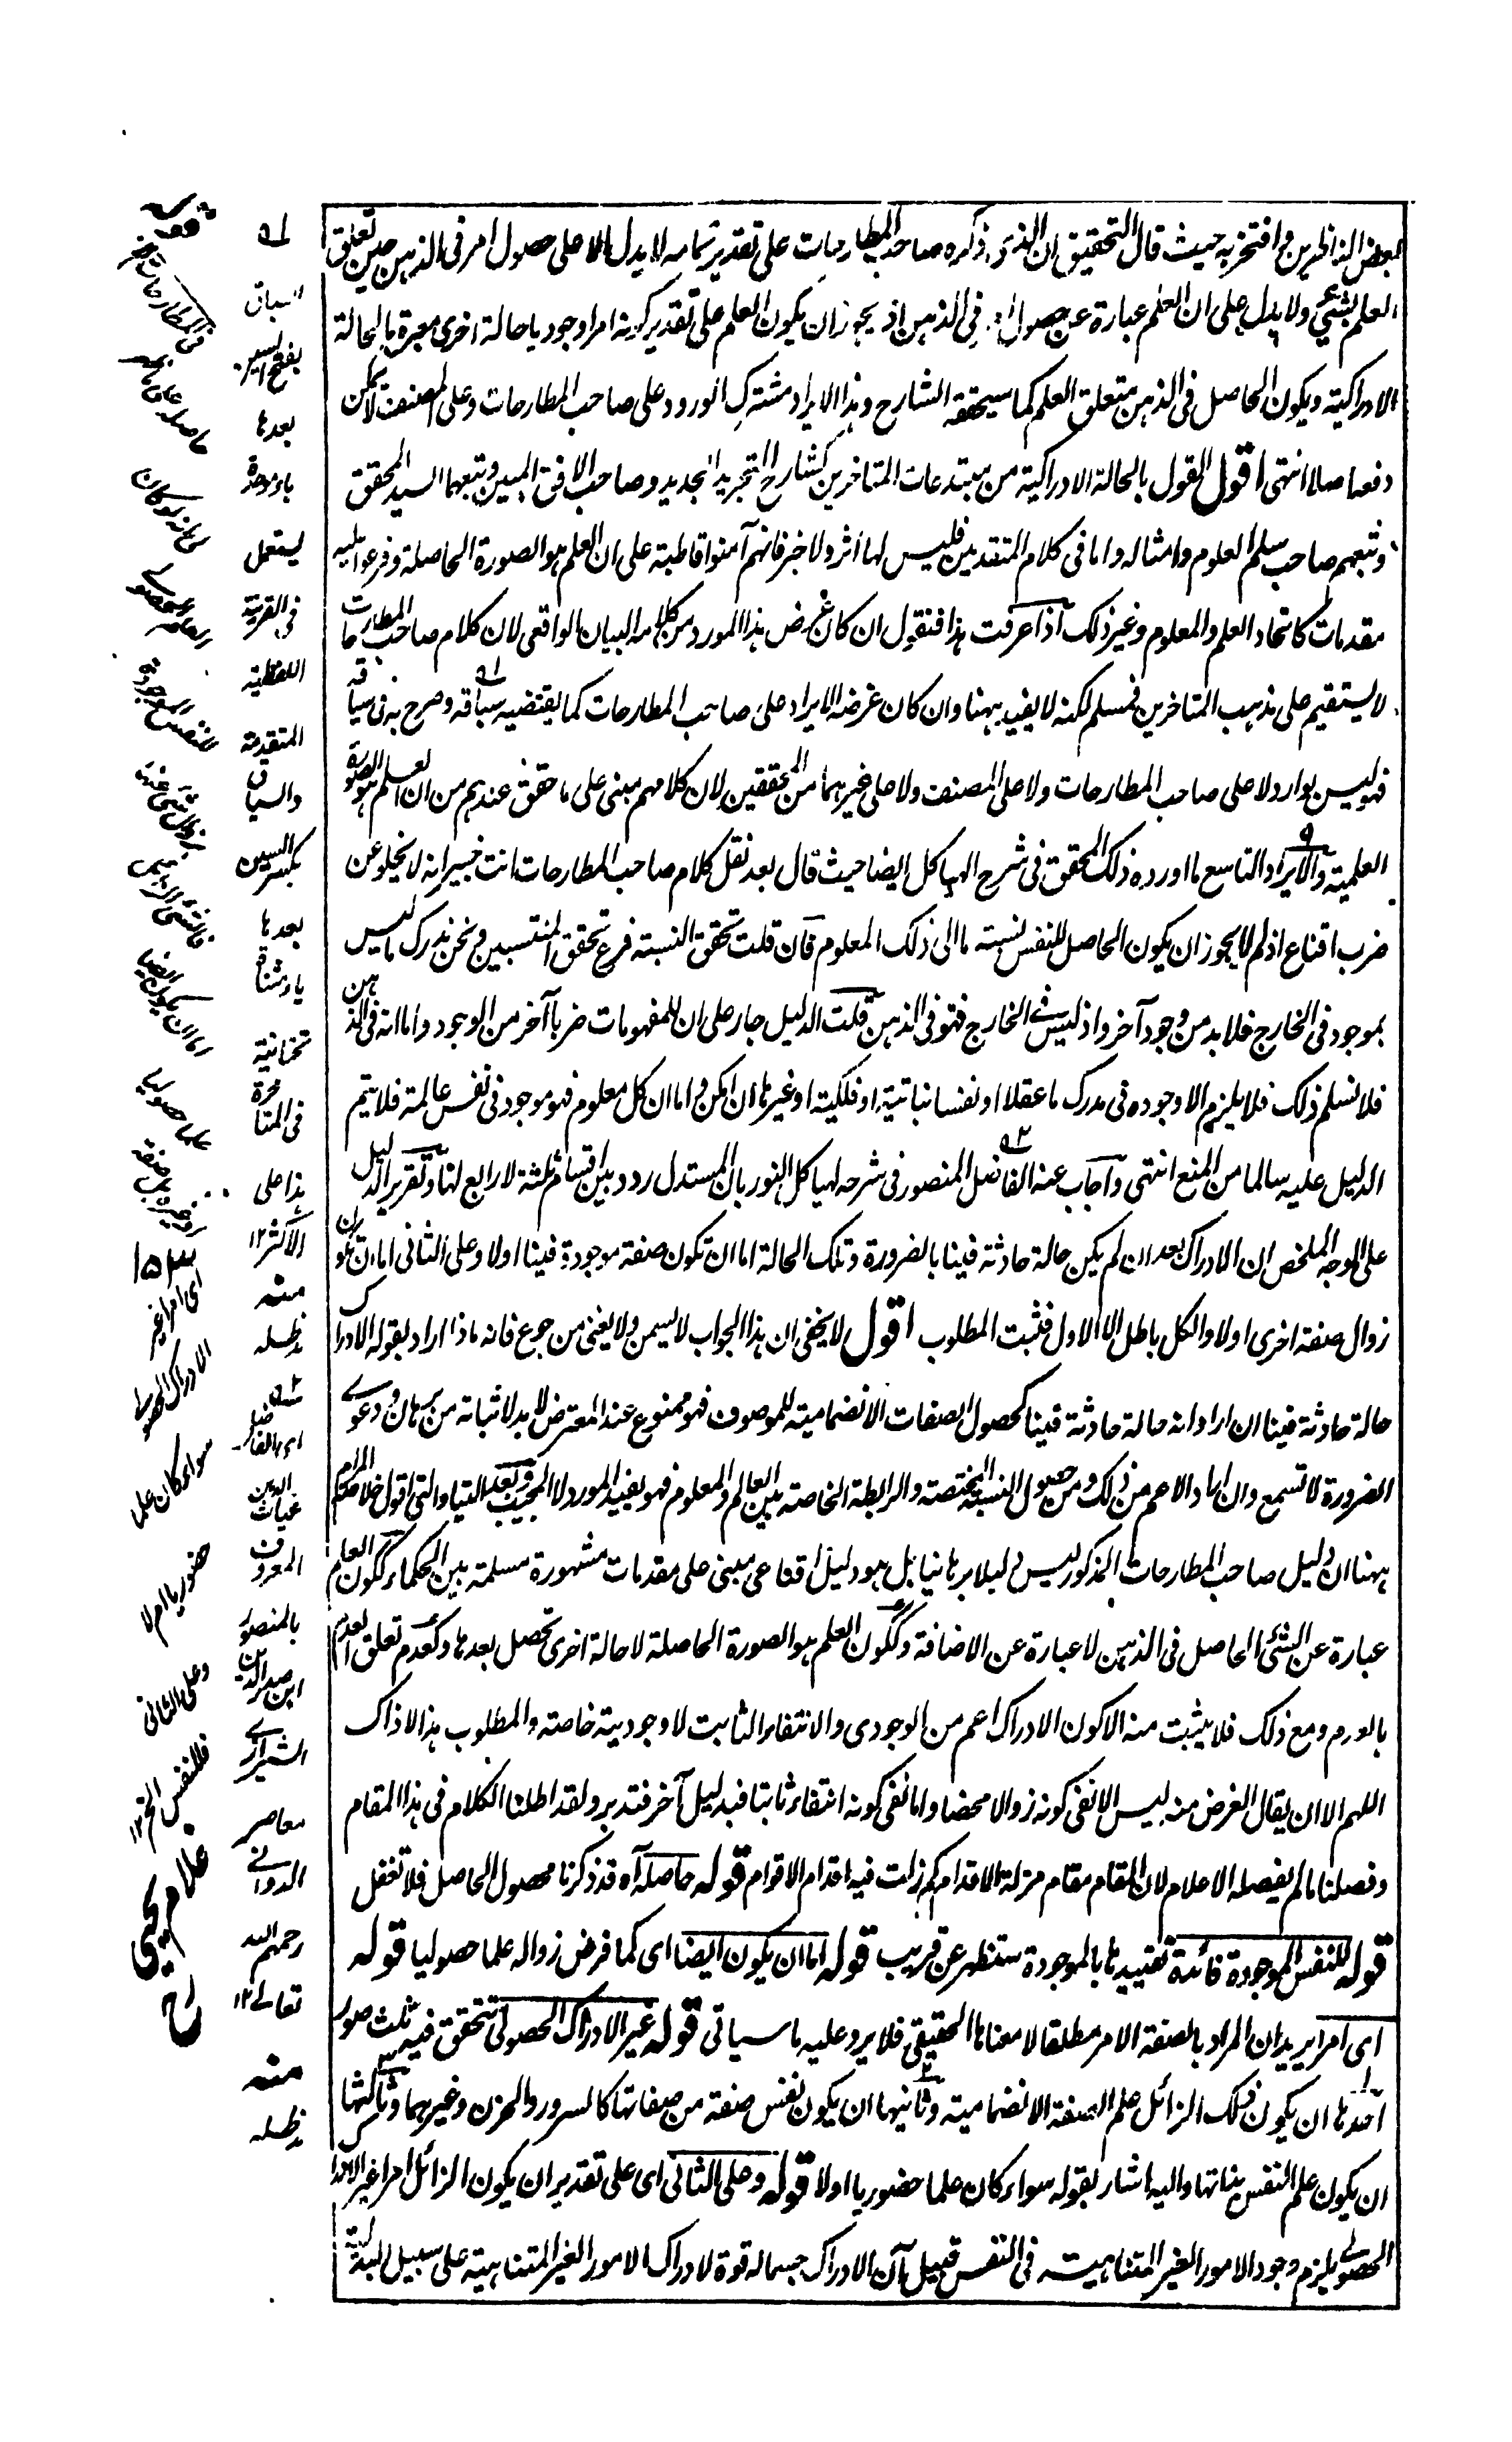 لبعض الناظرين وافتخر به حيث قال التحقيق ان الذي ذكره صاحب المطارحات على تقدير تمامه لا يدل الا على حصول امر في الذهن حين تعلق
العلم بشئ ولا يدل على ان العلم عبارة عن حصول في الذهن اذ يجوز ان يكون العلم على تقدير كونه امرا وجوديا حالة اخرى معبرة بالحالة
الادراكية ويكون الحاصل في الذهن متعلق العلم كما سيحققه الشارح وهذا الايراد مشترك الورود على صاحب المطارحات وعلى المصنف لا يمكن
دفعه اصلا انتهى اقول القول بالحالة الادراكية من مبتدعات المتاخرين كشارح التجريد الجديد وصاحب الافق المبين وتبعهما السيد المحقق
وتبعهم صاحب سلم العلوم وامثاله واما في كلام المتقدمين فليس لها اثر ولا خبر فانهم آمنوا قاطبة على ان العلم هو الصورة الحاصلة وفرعوا عليه
مقدمات كاتحاد العلم والمعلوم وغير ذلك اذا عرفت هذا فنقول ان كان غرض هذا المورد من كلامه البيان الواقعي لان كلام صاحب المطارحات
لا يستقيم على مذهب المتاخرين فمسلم لكنه لا يفيد ههنا وان كان غرضه الايراد على صاحب المطارحات كما يقتضيه سباقه وصرح به في سياقه
فهو ليس بوارد لا على صاحب المطارحات ولا على المصنف ولا على غيرهما من المحققين لان كلامهم مبني على ما حقق عندهم من ان العلم هو الصورة
العلمية والايراد التاسع ما اورده ذلك المحقق في شرح الهياكل ايضا حيث قال بعد نقل كلام صاحب المطارحات انت خبير انه لا يخلو عن
ضرب اقناع اذ لم لا يجوز ان يكون الحاصل للنفس نسبة ما الى ذلك المعلوم فان قلت تحقق النسبة فرع تحقق المنتسبين ونحن ندرك ما ليس
بموجود في الخارج فلا بد من وجود آخر واذ ليس في الخارج فهو في الذهن قلت الدليل جار على ان للمفهومات ضربا آخر من الوجود واما انه في الذهن
فلا نسلم ذلك فلا يلزم الا وجوده في مدرك ما عقلا او نفسا نباتية او فلكية او غيرها ان امكن واما ان كل معلوم فهو موجود في نفس عالمه فلا يتم
الدليل عليه سالما من المنع انتهى واجاب عنه الفاضل المنصور في شرحه لهياكل النور بان المستدل ردد بين اقسام ثلثة لا رابع لها وتقرير الدليل
على الوجه الملخص ان الادراك بعد ان لم يكن حالة حادثة فينا بالضرورة وتلك الحالة اما ان تكون صفة موجودة فينا اولا وعلى الثاني اما ان تكون
زوال صفة اخرى اولا والكل باطل الا الاول فثبت المطلوب اقول لا يخفى ان هذا الجواب لا يسمن ولا يغني من جوع فانه ماذا اراد بقوله الادراك
حالة حادثة فينا ان اراد انه حالة حادثة فينا كحصول الصفات الانضمامية للموصوف فهو ممنوع عند المعترض لا بد لاثباته من برهان ودعوى
الضرورة لا تسمع وان اراد الاعم من ذلك ومن حصول النسبة المختصة والرابطة الخاصة بين العالم والمعلوم فهو يفيد المورد لا المجيب وبعد اللتيا والتي اقول خلاصة المرام
ههنا ان دليل صاحب المطارحات المذكور ليس دليلا برهانيا بل هو دليل اقناعي مبني على مقدمات مشهورة مسلمة بين الحكماء ككون العلم
عبارة عن الشئ الحاصل في الذهن لا عبارة عن الاضافة وككون العلم هو الصورة الحاصلة لا حالة اخرى تحصل بعدها وكعدم تعلق العدم
بالعدم ومع ذلك فلا يثبت منه الا كون الادراك اعم من الوجودي والانتفاء الثابت لا وجوديته خاصة والمطلوب هذا لا ذاك
اللهم الا ان يقال الغرض منه ليس الا نفي كونه زوالا محضا واما نفي كونه انتفاء ثابتا فبدليل آخر فتدبر ولقد اطلنا الكلام في هذا المقام
وفصلنا ما لم يفصله الاعلام لان المقام مقام مزلة الاقدام كم زلت فيه اقدام الاقوام قوله حاصله آه قد ذكرنا محصول الحاصل فلا تغفل
قوله للنفس الموجودة فائدة تقييدها بالموجودة ستظهر عن قريب قوله اما ان يكون ايضا اي كما فرض زواله علما حصوليا قوله
اي امر يريد ان المراد بالصفة الامر مطلقا لا معناها الحقيقي فلا يرد عليه ما سياتي قوله غير الادراك الحصولي تتحقق فيه ثلث صور
احدها ان يكون ذلك الزائل علم الصفة الانضمامية وثانيها ان يكون نفس صفة من صفاتها كالسرور والحزن وغيرهما وثالثها
ان يكون علم النفس بذاتها واليه اشار بقوله سواء كان علما حضوريا اولا قوله وعلى الثاني اي على تقدير ان يكون الزائل امرا غير الادراك
الحصولي يلزم وجود الامور الغير المتناهية في النفس قبيل آن الادراك حسبما له قوة لادراك الامور الغير المتناهية على سبيل البدلية
السباق
بفتح السين
بعدها
باء موحدة
يستعمل
في القرينة
اللفظية
المتقدمة
والسياق
بكسر السين
بعدها
ياء مثناة
تحتانية
في المتاخرة
هذا على
الاكثر ١٢
منه
مدظله
اي الفاضل
غياث الدين
المعروف
بالمنصور
ابن صدر الدين
الشيرازي
معاصر
الدواني
رحمهم الله
تعالى ١٢
منه
مدظله
قوله
في المطارحات
حاصله
للنفس الموجودة
اما ان يكون ايضا
علما حصوليا
اي امرا غير
الادراك الحصولي
سواء كان علما
حضوريا ام لا
وعلى الثاني
فللنفس الخ ١٢
غلام يحيى